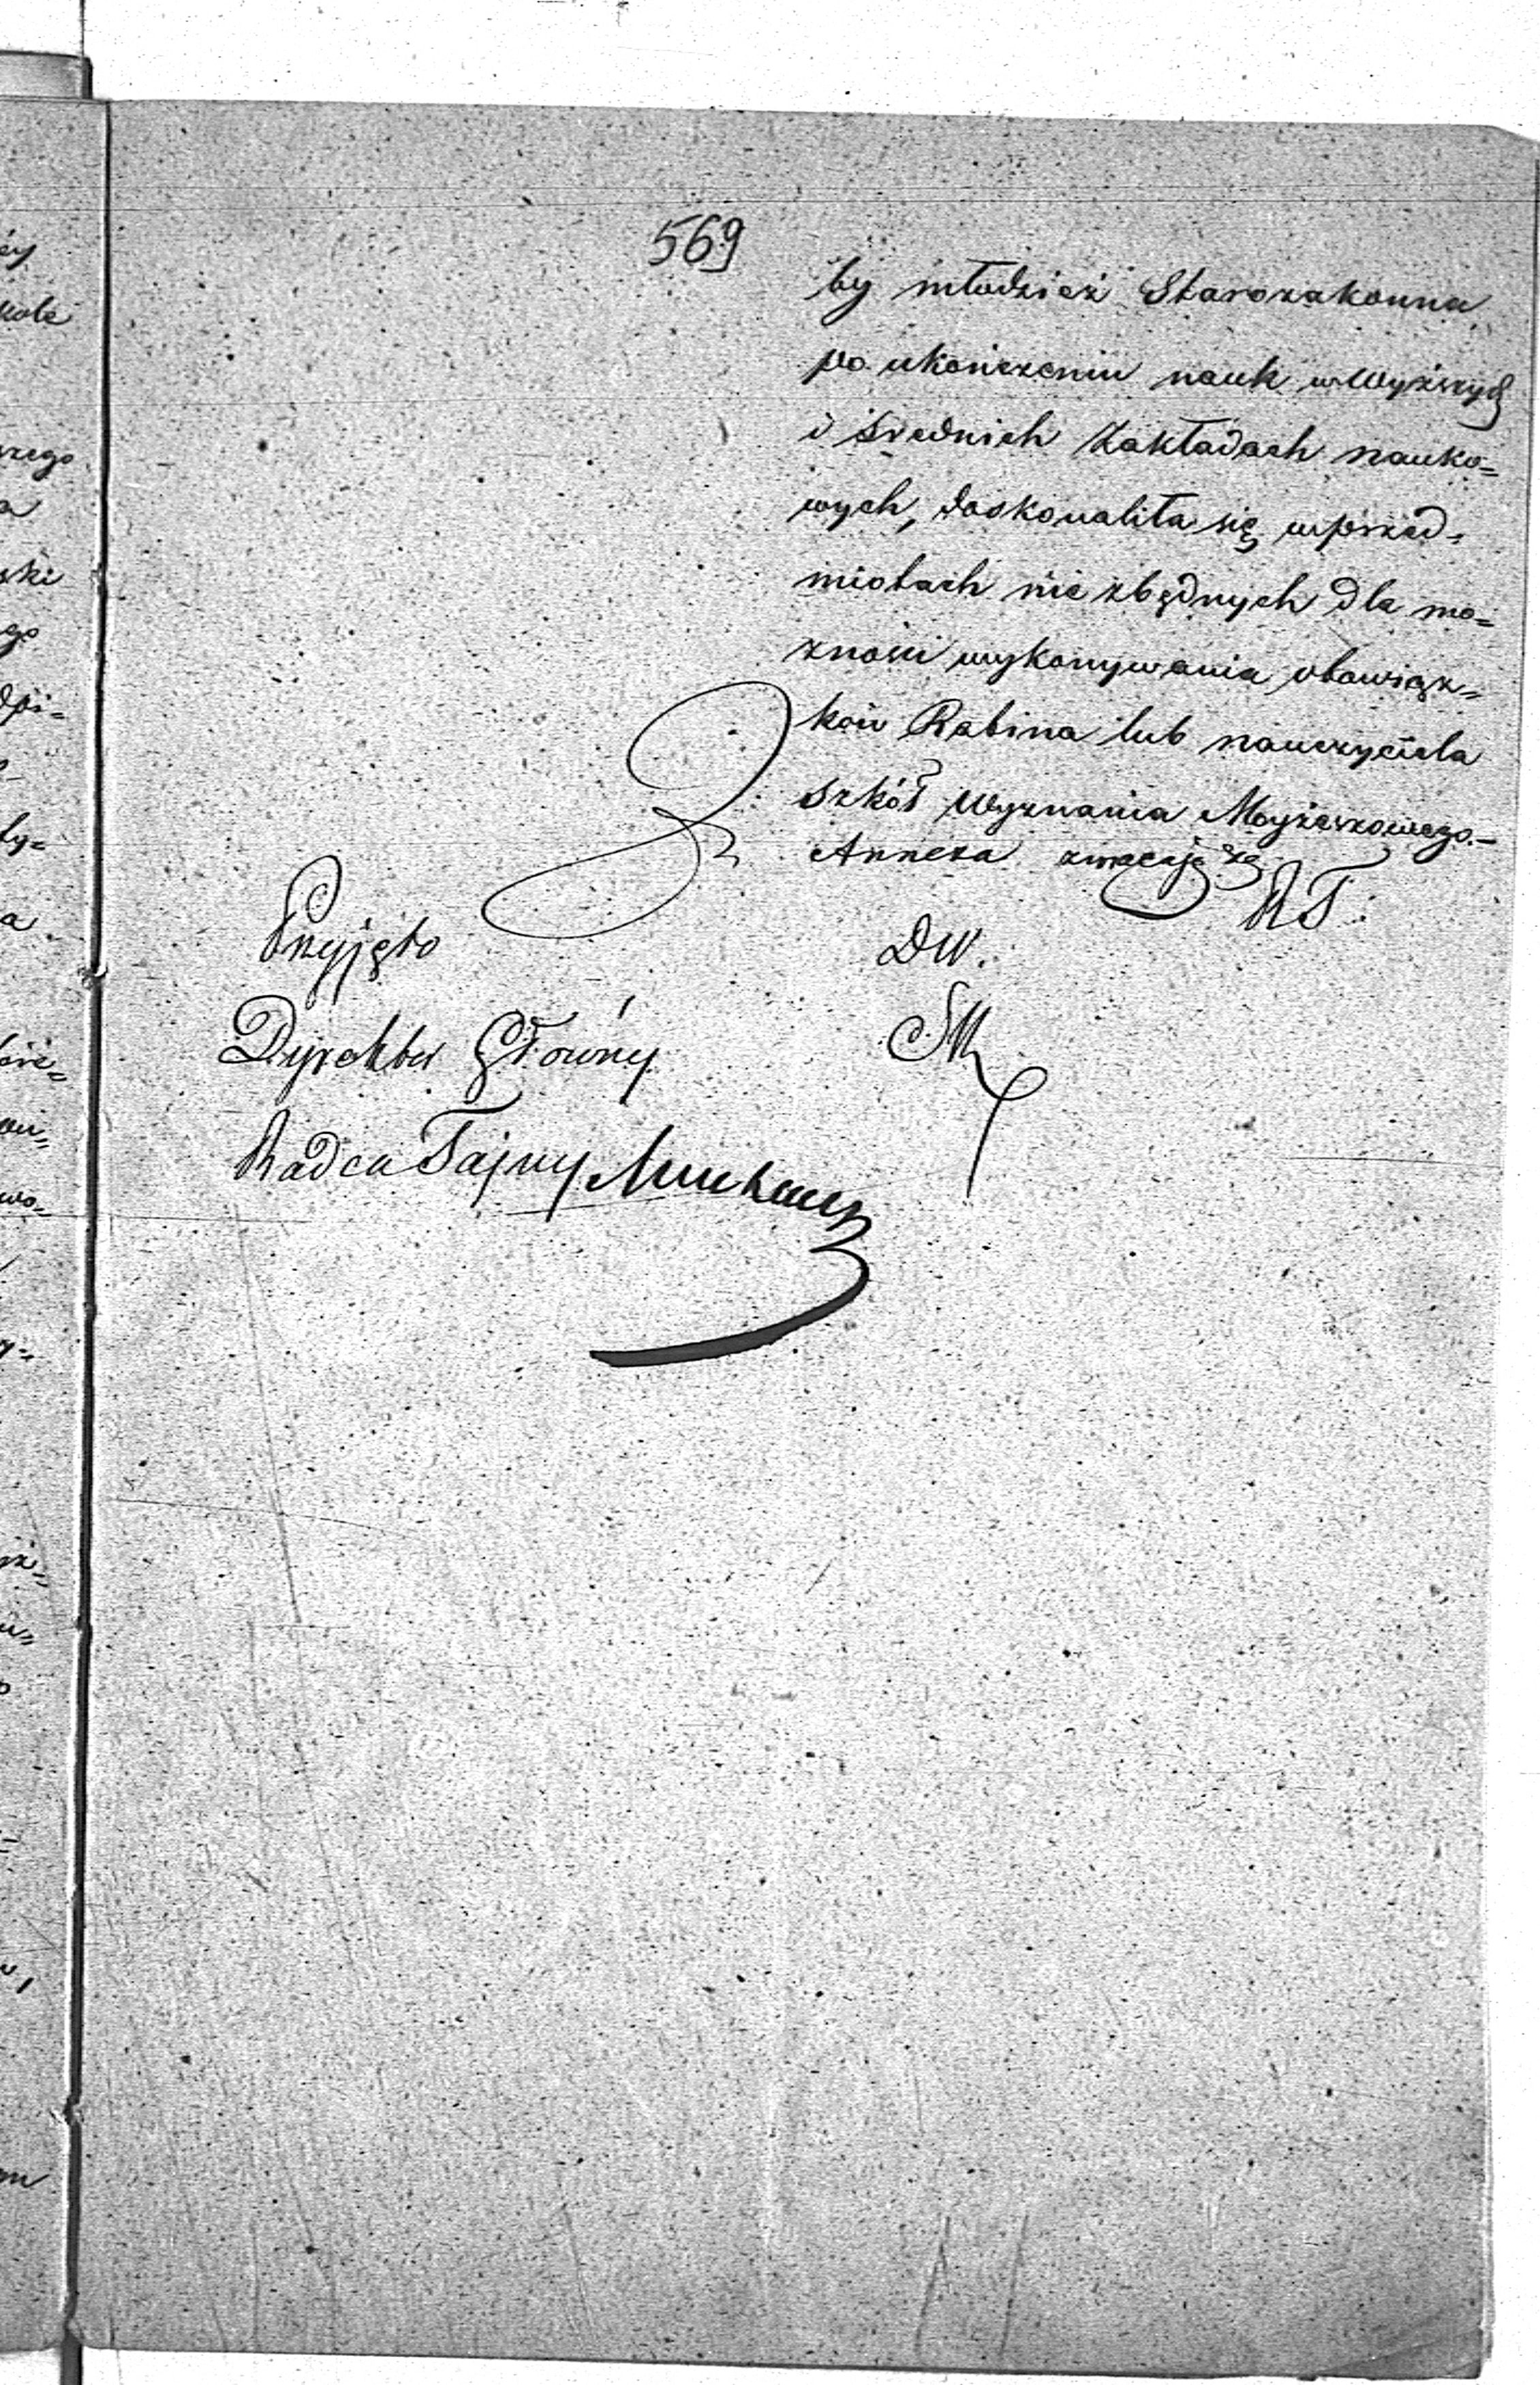 569
by młodzież Starozakonna
po ukończeniu nauk w Wyższych
i średnich Zakładach nauko=
wych, doskonaliła się w przed=
miotach niezbędnych dla mo=
żności wykonywania obowiąz=
ków Rabina lub nauczyciela
szkół Wyznania Mojżeszowego.—
Annexa zwracają się
Przyjęto
DW.
Dyrektor Główny
SM
Radca Tajny